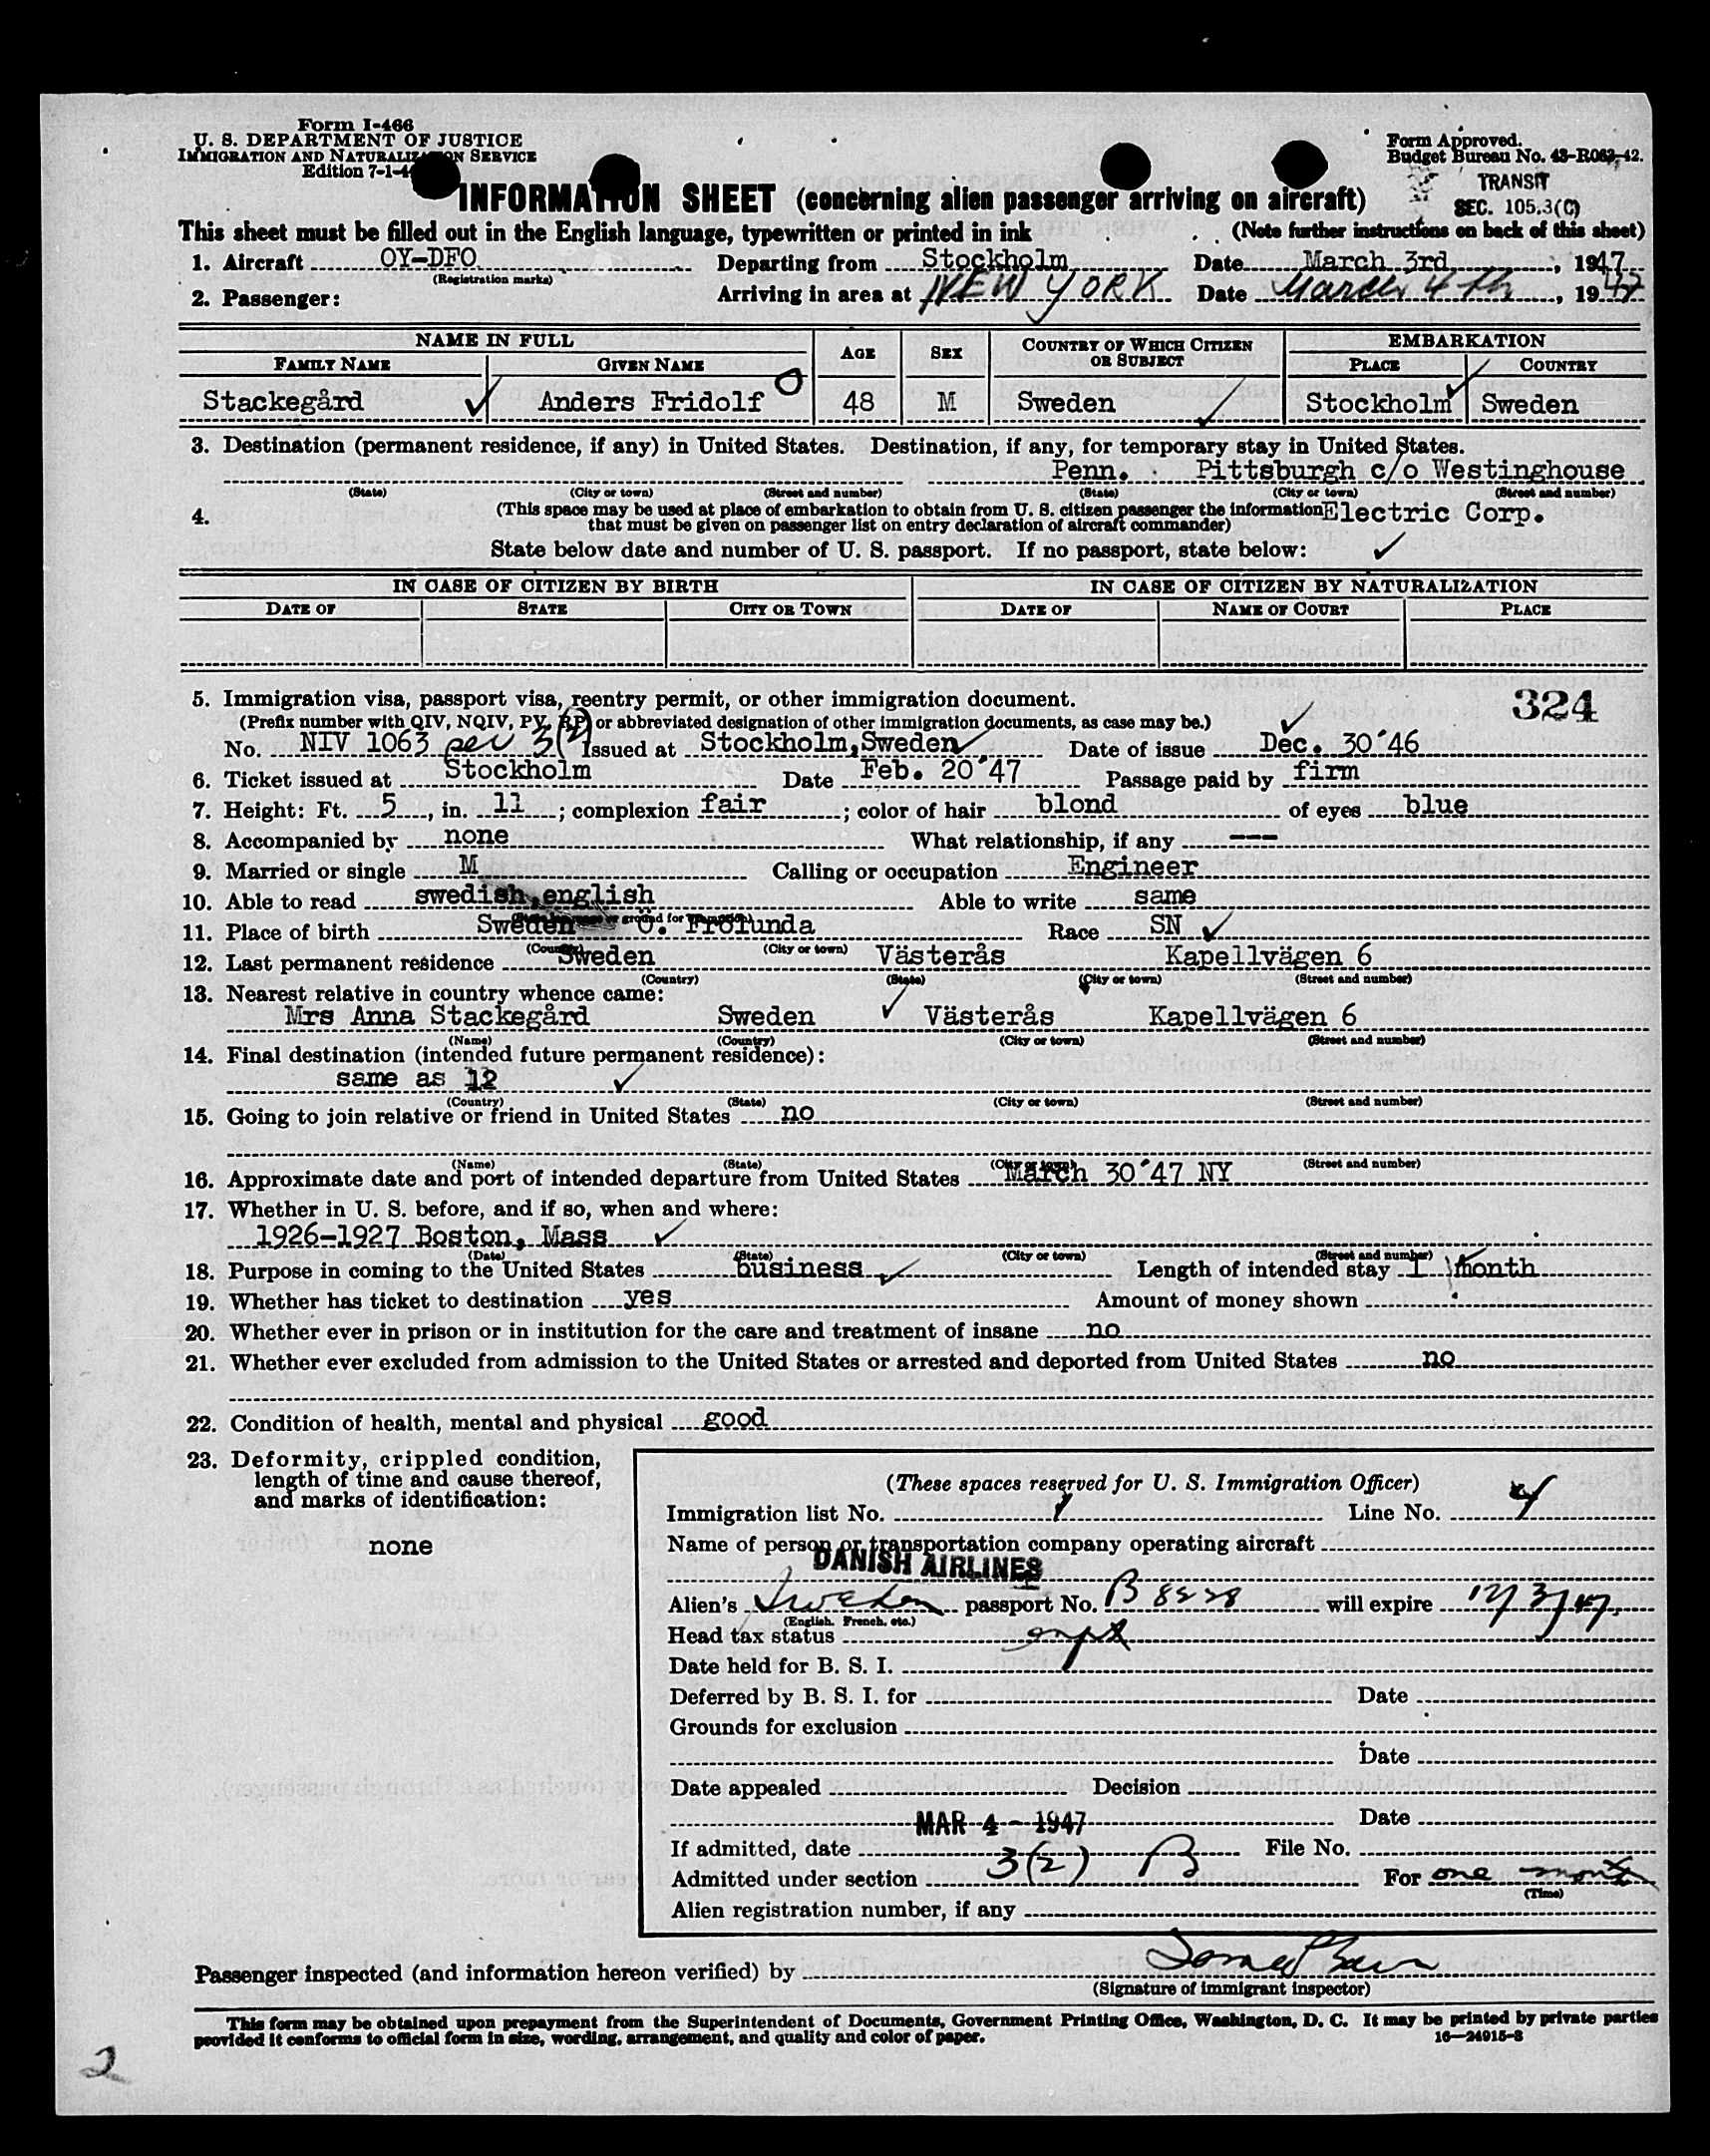 Form I-466
U. S. DEPARTMENT OF JUSTICE
IMMIGRATION AND NATURALIZATION SERVICE
Edition 7-1-4
Form Approved.
Budget Bureau No. 43-R063-42.
TRANSIT
SEC. 105.3(C)
INFORMATION SHEET (concerning alien passenger arriving on aircraft)
This sheet must be filled out in the English language, typewritten or printed in ink (Note further instructions on back of this sheet)
1. Aircraft OY-DFO Departing from Stockholm Date March 3rd, 1947
(Registration marks)
2. Passenger: Arriving in area at NEW YORK Date March 4th, 1947
NAME IN FULL AGE SEX COUNTRY OF WHICH CITIZEN OR SUBJECT EMBARKATION
FAMILY NAME GIVEN NAME PLACE COUNTRY
Stackegård Anders Fridolf 48 M Sweden Stockholm Sweden
3. Destination (permanent residence, if any) in United States. Destination, if any, for temporary stay in United States.
Penn. Pittsburgh c/o Westinghouse
(State) (City or town) (Street and number) (State) (City or town) (Street and number)
4. (This space may be used at place of embarkation to obtain from U. S. citizen passenger the information Electric Corp.
that must be given on passenger list on entry declaration of aircraft commander)
State below date and number of U. S. passport. If no passport, state below:
IN CASE OF CITIZEN BY BIRTH IN CASE OF CITIZEN BY NATURALIZATION
DATE OF STATE CITY OR TOWN DATE OF NAME OF COURT PLACE
5. Immigration visa, passport visa, reentry permit, or other immigration document. 324
(Prefix number with QIV, NQIV, PV, RP, or abbreviated designation of other immigration documents, as case may be.)
No. NIV 1063 sec 3(2) Issued at Stockholm, Sweden Date of issue Dec. 30'46
6. Ticket issued at Stockholm Date Feb. 20'47 Passage paid by firm
7. Height: Ft. 5, in. 11; complexion fair; color of hair blond of eyes blue
8. Accompanied by none What relationship, if any ---
9. Married or single M Calling or occupation Engineer
10. Able to read swedish, english Able to write same
11. Place of birth Sweden Ö. Frölunda Race SN
(Country) (City or town)
12. Last permanent residence Sweden Västerås Kapellvägen 6
(Country) (State) (City or town) (Street and number)
13. Nearest relative in country whence came:
Mrs Anna Stackegård Sweden Västerås Kapellvägen 6
(Name) (Country) (City or town) (Street and number)
14. Final destination (intended future permanent residence):
same as 12
(Country) (State) (City or town) (Street and number)
15. Going to join relative or friend in United States no
(Name) (State) (City or town) (Street and number)
16. Approximate date and port of intended departure from United States March 30'47 NY
17. Whether in U. S. before, and if so, when and where:
1926-1927 Boston, Mass
(Date) (State) (City or town) (Street and number)
18. Purpose in coming to the United States business Length of intended stay 1 month
19. Whether has ticket to destination yes Amount of money shown
20. Whether ever in prison or in institution for the care and treatment of insane no
21. Whether ever excluded from admission to the United States or arrested and deported from United States no
22. Condition of health, mental and physical good
23. Deformity, crippled condition,
length of time and cause thereof,
and marks of identification:
none
(These spaces reserved for U. S. Immigration Officer)
Immigration list No. 1 Line No. 4
Name of person or transportation company operating aircraft
DANISH AIRLINES
Alien's Sweden passport No. B 8228 will expire 12/3/47
(English, French, etc.)
Head tax status
Date held for B. S. I.
Deferred by B. S. I. for Date
Grounds for exclusion
Date
Date appealed Decision
Date
MAR 4 - 1947
If admitted, date File No.
Admitted under section 3(2) B For one month
(Time)
Alien registration number, if any
Passenger inspected (and information hereon verified) by
(Signature of immigrant inspector)
This form may be obtained upon prepayment from the Superintendent of Documents, Government Printing Office, Washington, D. C. It may be printed by private parties
provided it conforms to official form in size, wording, arrangement, and quality and color of paper. 16—24915-8
2